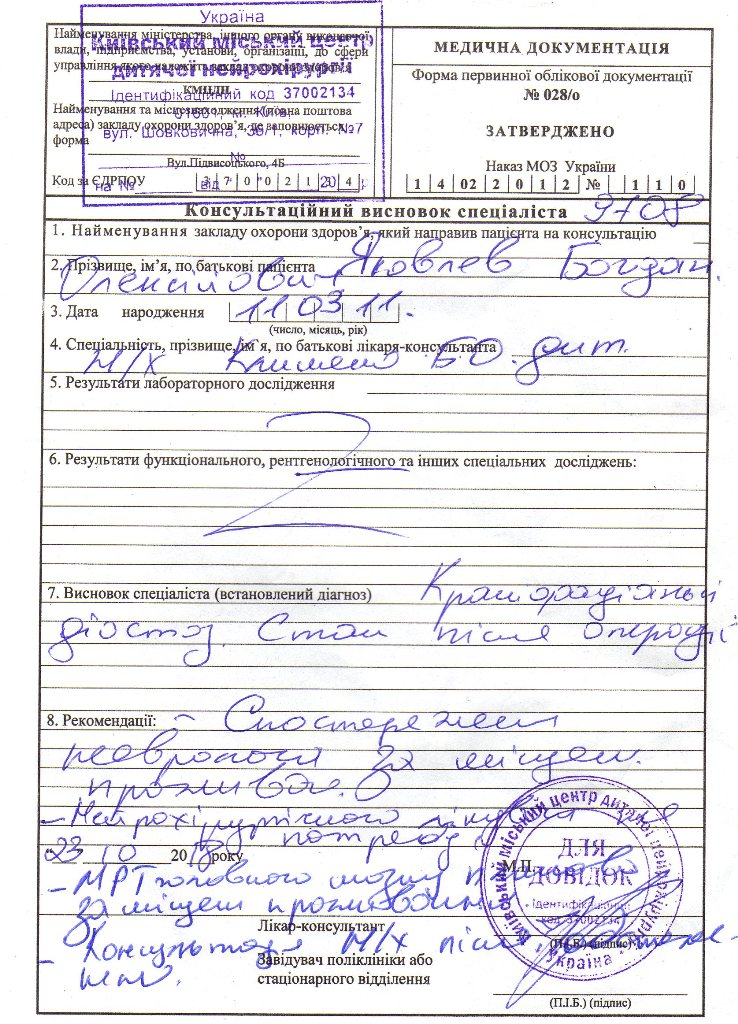 Україна
Київський міський центр
дитячої нейрохірургії
Ідентифікаційний код 37002134
01601, м. Київ,
вул. Шовковична, 39/1, корп. №7
№
на № від 20 р
Найменування міністерства, іншого органу виконавчої
влади, підприємства, установи, організації, до сфери
управління якого належить заклад охорони здоров'я
Найменування та місцезнаходження (повна поштова
адреса) закладу охорони здоров'я, де заповнюється
форма
Вул.Підвисоцького, 4Б
Код за ЄДРПОУ 3 7 0 0 2 1 3 4
МЕДИЧНА ДОКУМЕНТАЦІЯ
Форма первинної облікової документації
№ 028/о
ЗАТВЕРДЖЕНО
Наказ МОЗ України
1 4 0 2 2 0 1 2 № 1 1 0
Консультаційний висновок спеціаліста 9708
1. Найменування закладу охорони здоров'я, який направив пацієнта на консультацію
2. Прізвище, ім'я, по батькові пацієнта Яковлев Богдан
Олексійович
3. Дата народження 11 03 11.
(число, місяць, рік)
4. Спеціальність, прізвище, ім'я, по батькові лікаря-консультанта
Н/Х Б.О. дит.
5. Результати лабораторного дослідження
6. Результати функціонального, рентгенологічного та інших спеціальних досліджень:
7. Висновок спеціаліста (встановлений діагноз)
Стан після операції
8. Рекомендації: - Спостереження
невролога за місцем
проживан.
- Нейрохірургічного
потребує
"23" 10 2018 року
М.П.
- МРТ головного мозку
за місцем проживання
Лікар-консультант
(П.І.Б.) (підпис)
- Консультація Н/Х після
Завідувач поліклініки або
стаціонарного відділення
(П.І.Б.) (підпис)
Київський міський центр дитячої нейрохірургії
ДЛЯ
ДОВІДОК
Ідентифікаційний
код 37002134
Україна